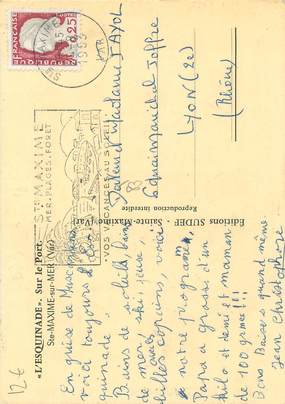 « L'ESQUINADE ». Sur le Port.
Ste-MAXIME-sur-MER (Var)
En guise de
voici toujours l'Es-
quinade.
Bains de soleil, bains
de mer, ski, jeux,
belles copains, voici
notre programme
Papa a grossi d'un
kilo et demi et maman
de 100 grammes !!!
Bons Baisers quand même.
Jean Christophe
Éditions SUDEF - Sainte-Maxime (Var)
Reproduction interdite
STE MAXIME
MER.PLAGES.FORET
VOS VACANCES AU SOLEIL
STE MAXIME
VAR
RÉPUBLIQUE FRANÇAISE
0,25
Docteur et Madame FAYOL
quai Maréchal Joffre
LYON (2e)
(Rhône)
12€